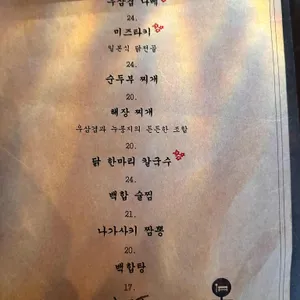 우삼겹 나베
24.
미즈타키
일본식 닭전골
24.
순두부 찌개
20.
해장 찌개
우삼겹과 누룽지의 든든한 조합
20.
닭 한마리 칼국수
24.
백합 술찜
21.
나가사키 짬뽕
20.
백합탕
17.